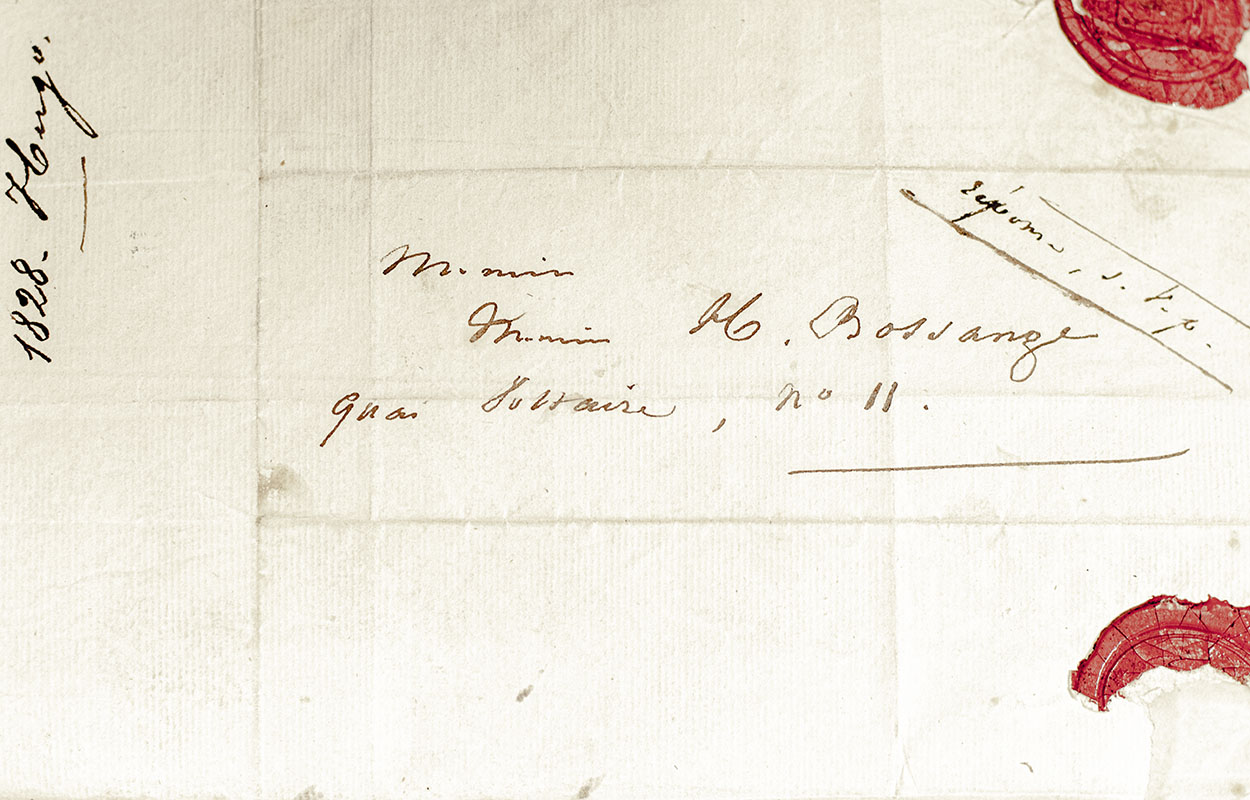 1828. Hugo.
réponse, s. v. p.
Monsieur
Monsieur H. Bossange
quai Voltaire, no 11.